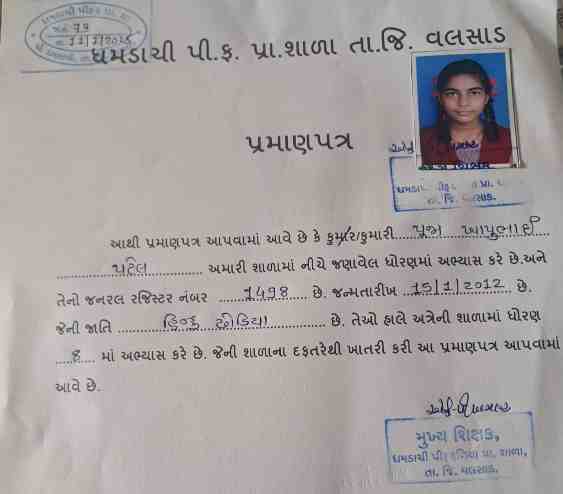 ધમડાચી પી.ફ. પ્રા.શાળા તા.જિ. વલસાડ
પ્રમાણપત્ર
આથી પ્રમાણપત્ર આપવામાં આવે છે કે કુમાર/કુમારી પૂજા બાપુભાઈ
પટેલ અમારી શાળામાં નીચે જણાવેલ ધોરણમાં અભ્યાસ કરે છે.અને
તેનો જનરલ રજિસ્ટર નંબર 1498 છે. જન્મતારીખ 15/1/2012 છે.
જેની જાતિ હિન્દુ ધોડિયા છે. તેઓ હાલે અત્રેની શાળામાં ધોરણ
8 માં અભ્યાસ કરે છે. જેની શાળાના દફતરેથી ખાતરી કરી આ પ્રમાણપત્ર આપવામાં
આવે છે.
મુખ્ય શિક્ષક,
ધમડાચી પ્રા. શાળા,
તા. જિ. વલસાડ.